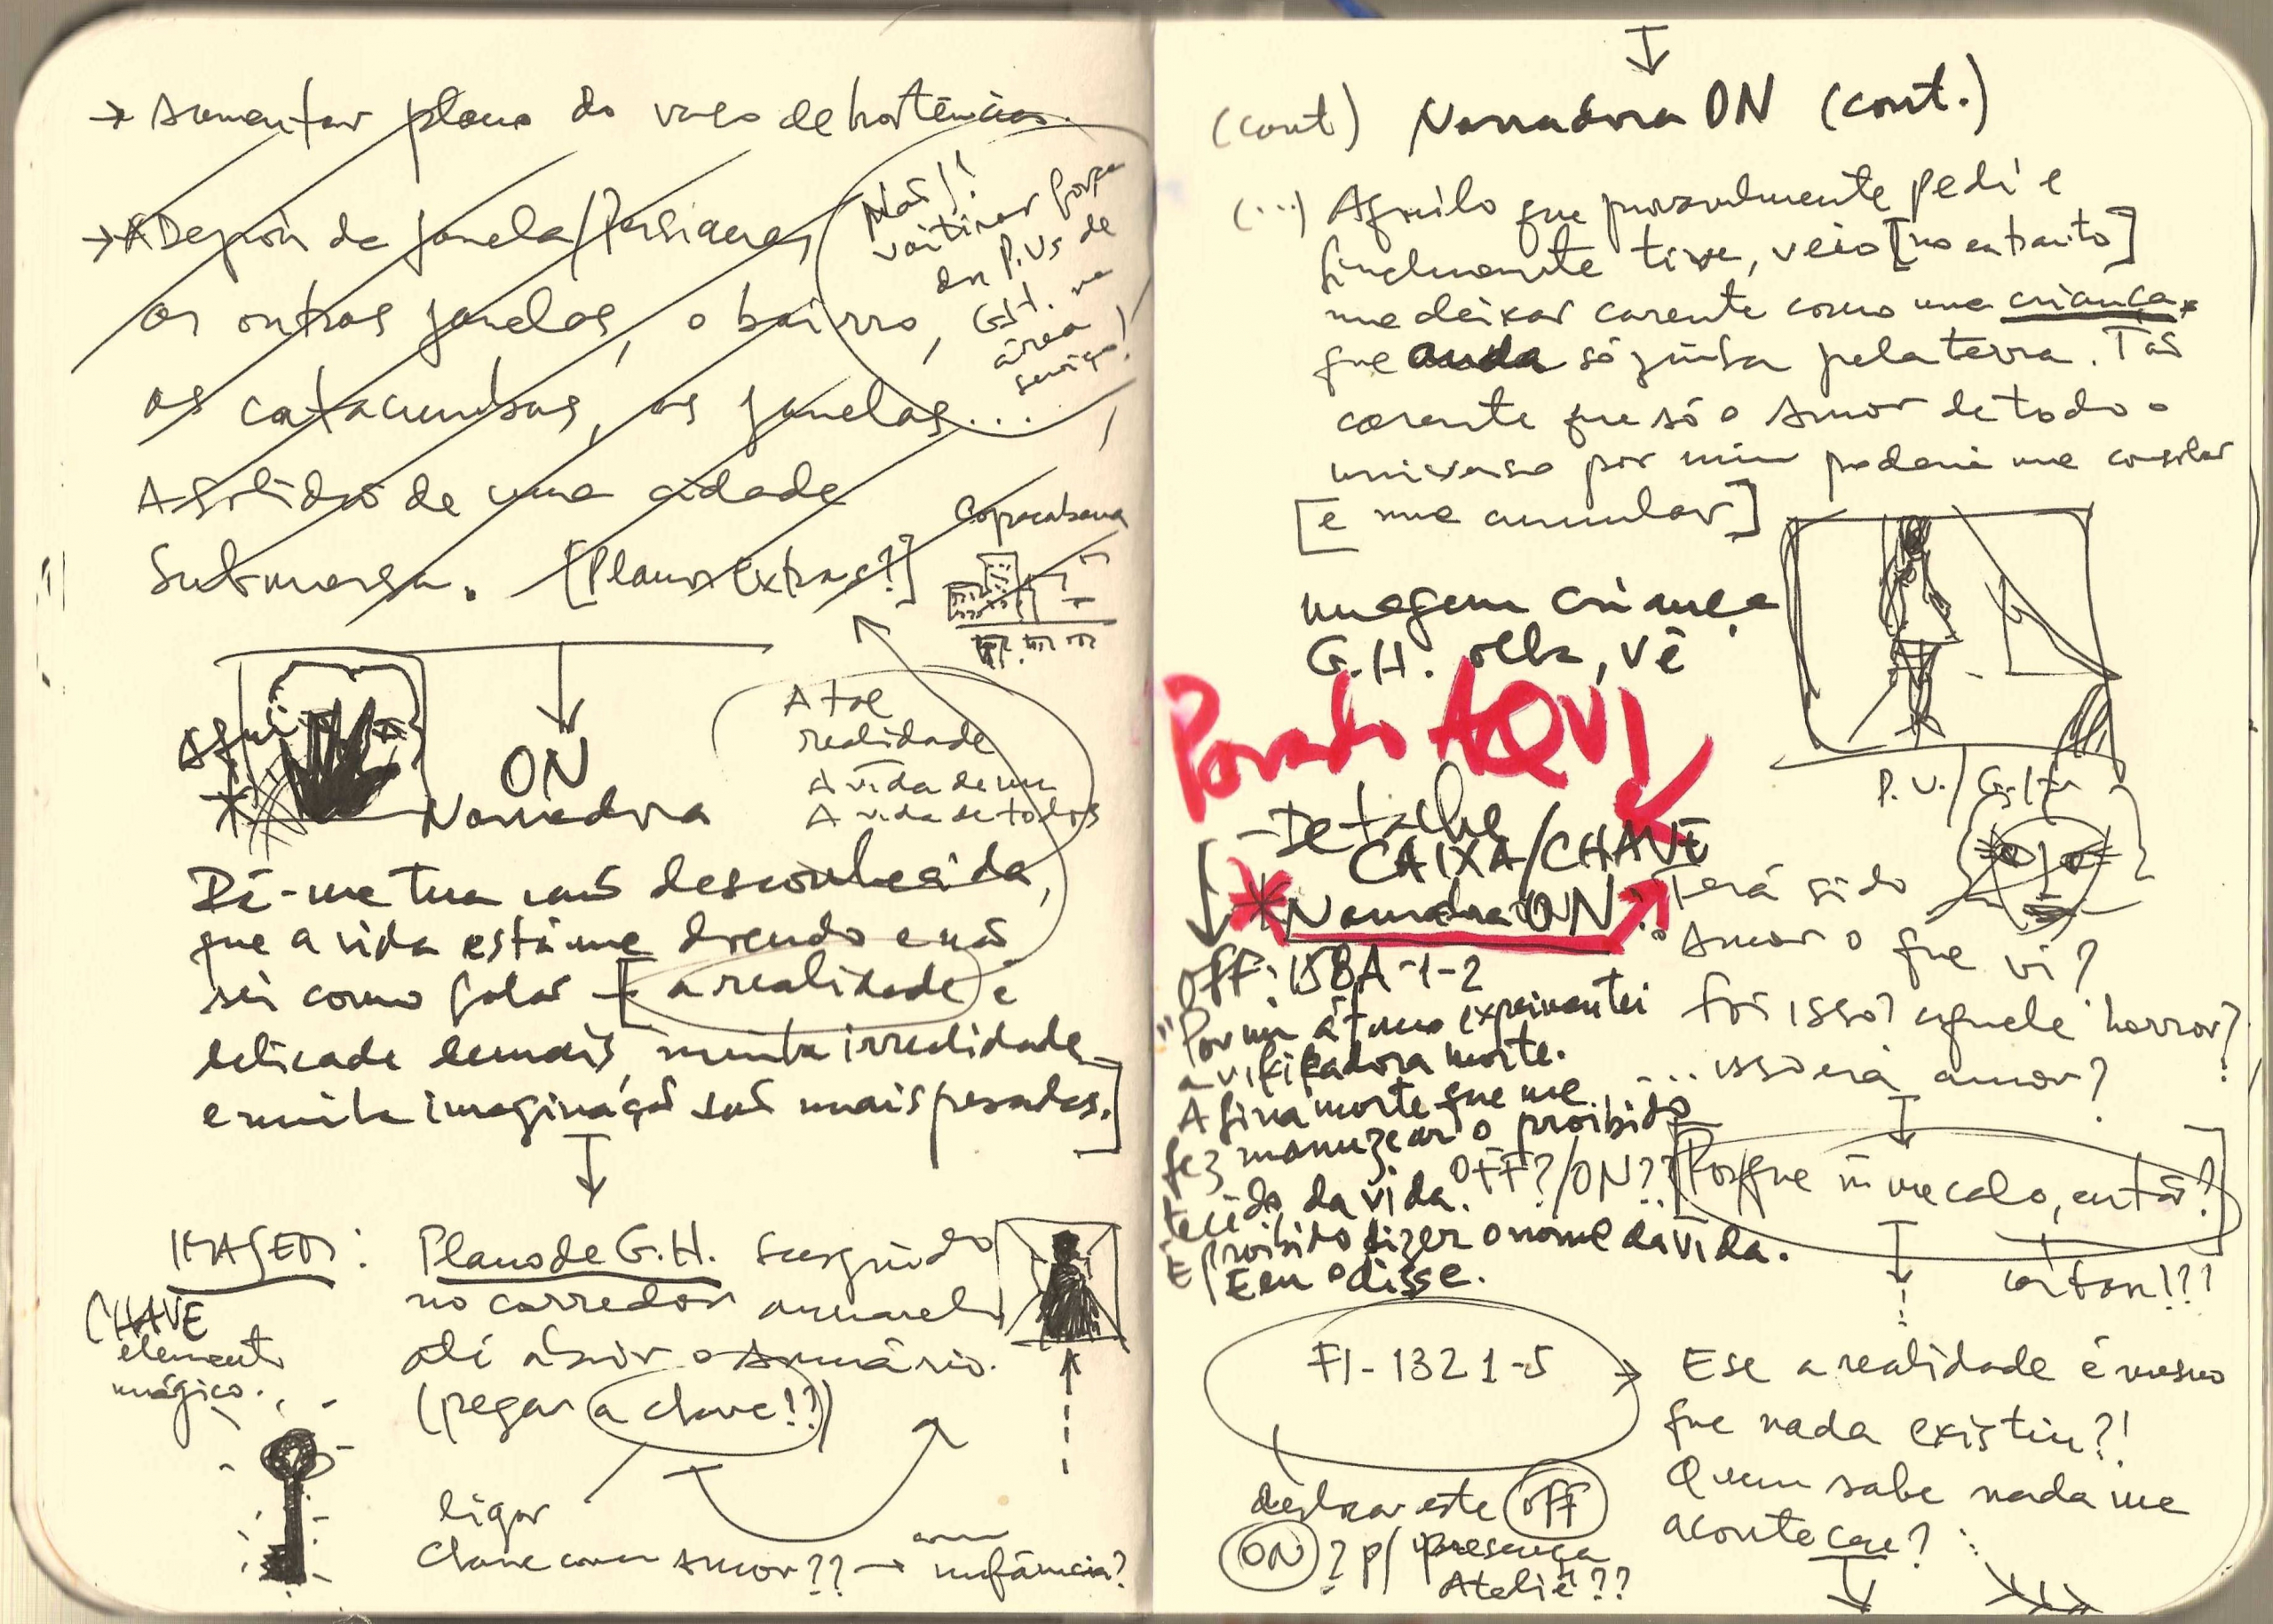 → Aumentar plano do vaso de hortências.
→ Depois da janela/Persianas,
as outras janelas, o bairro,
as catacumbas, as janelas...
A solidão de uma cidade
Submersa. [Planos extras?]
Não!!
voltinar força
dos P.Vs de
G.H. na
área
serviço!
Copacabana
Aqui
*
ON
Narradora
A tal
realidade
A vida de um
A vida de todos
Dá-me tua mão desconhecida,
que a vida está me doendo e não
sei como falar – [a realidade é
delicada demais, minha irrealidade
e minha imaginação são mais pesadas.]
IMAGEM: Plano de G.H. seguindo
no corredor
até abrir o armário.
(pegar a chave!?)
CHAVE
elemento
mágico.
ligar
Chave com amor?? → com
infância?
(cont) Narradora ON (cont.)
(...) Aquilo que provavelmente pedi e
finalmente tive, veio [no entanto]
me deixar carente como uma criança
que anda sózinha pela terra. Tão
carente que só o amor de todo o
universo por mim poderia me consolar
[e me cumular]
imagem criança
G.H. olha, vê
P.V./G.H.
Parado AQUI
- Detalhe
CAIXA/CHAVE
* Narradora ON
Off: 158A-1-2
"Por um átimo experimentei
a vivificadora morte.
A fina morte que me
fez manuzear o proibido
tecido da vida.
É proibido dizer o nome da vida.
E eu o disse.
OFF?/ON??
Terá sido
Amor o que vi?
Foi isso? aquele horror?
... isso era amor?
[Porque ñ me calo, então?]
cortar!??
FI-1321-5
deslocar este off
ON? p/ presença
Ateliê??
E se a realidade é mesmo
que nada existiu?!
Quem sabe nada me
aconteceu?